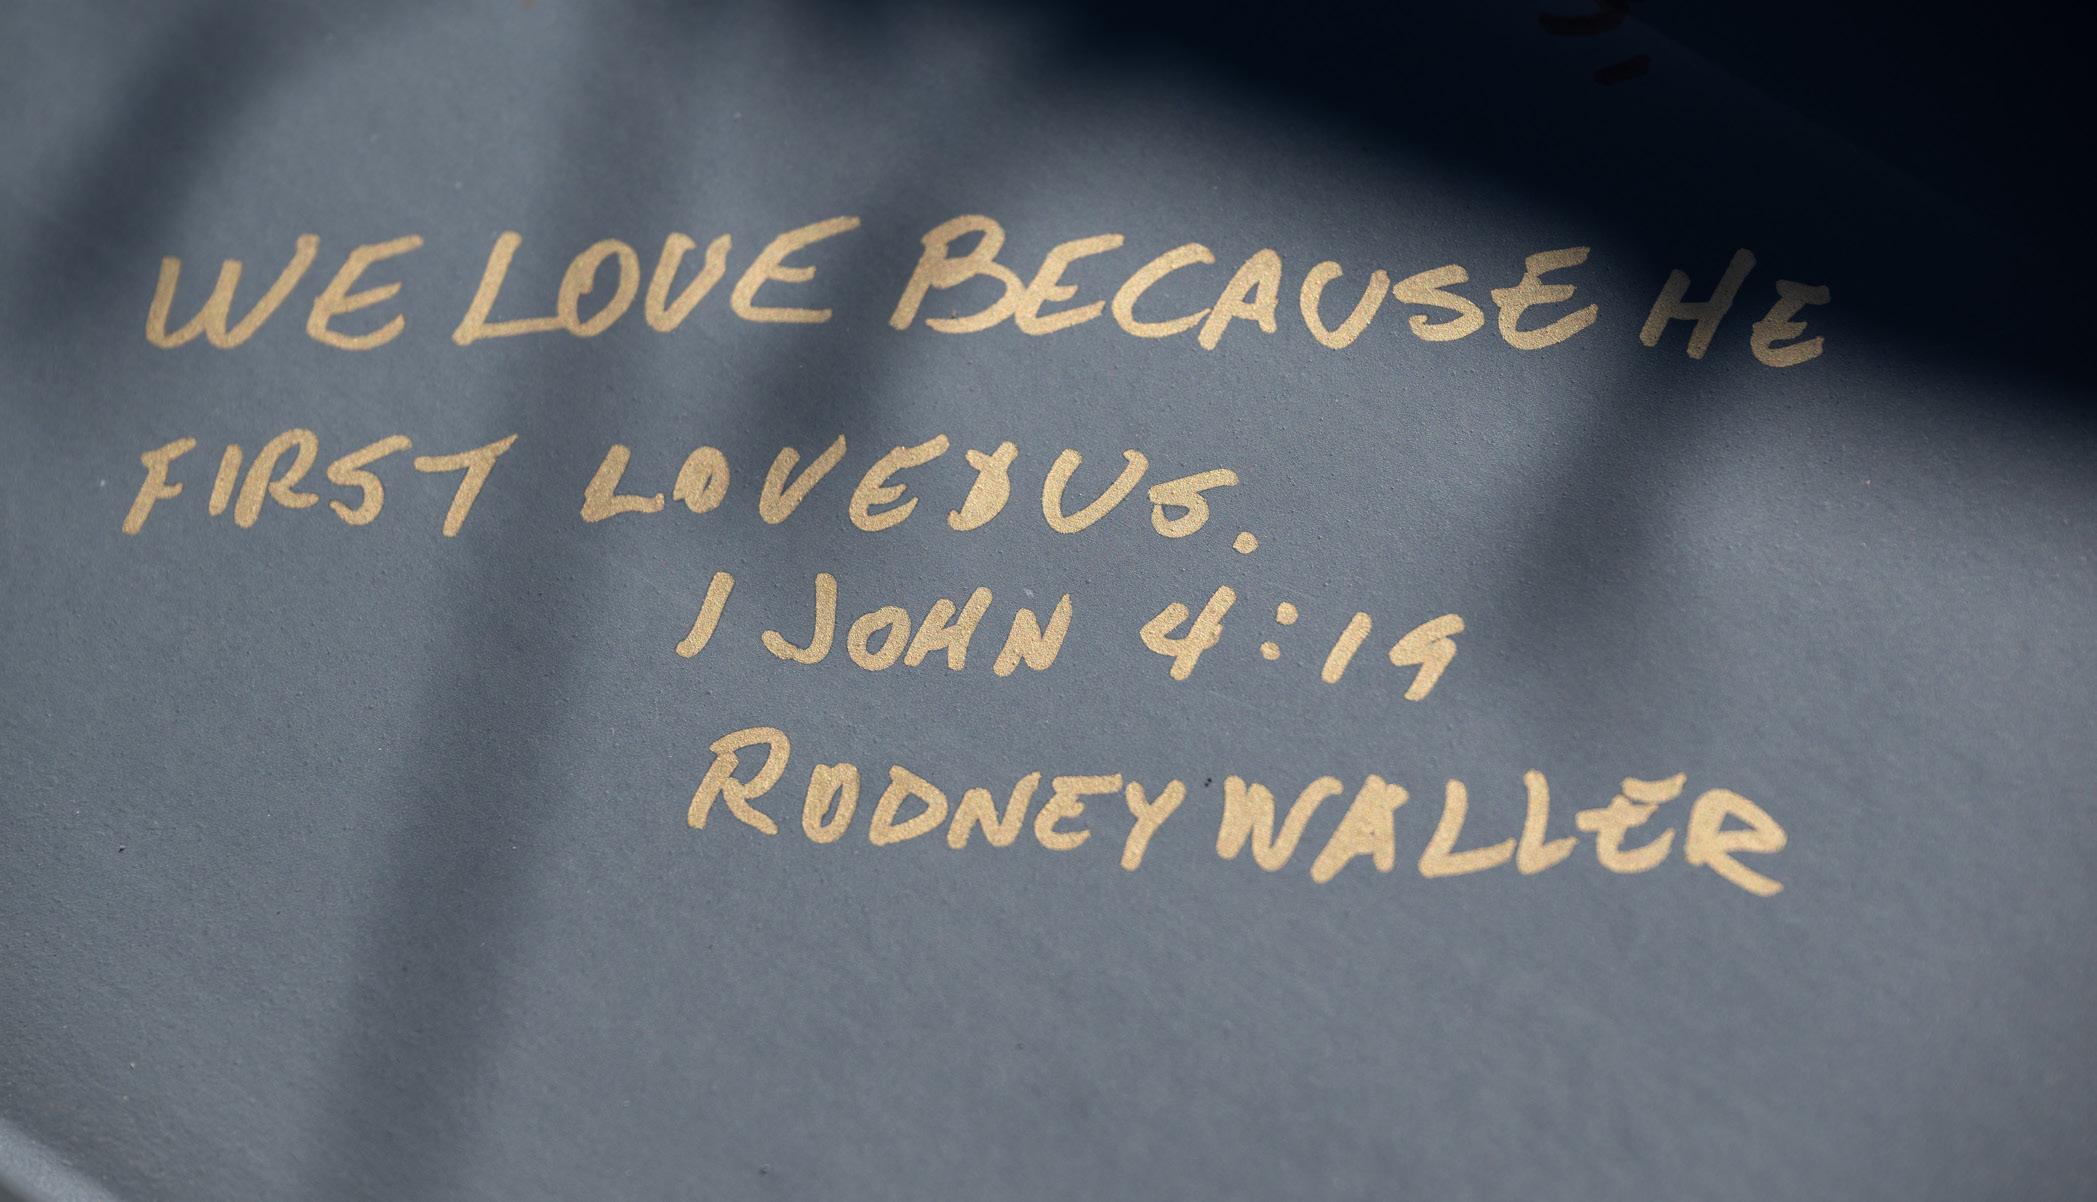 WE LOVE BECAUSE HE
FIRST LOVED US.
1 JOHN 4:19
RODNEY WALLER